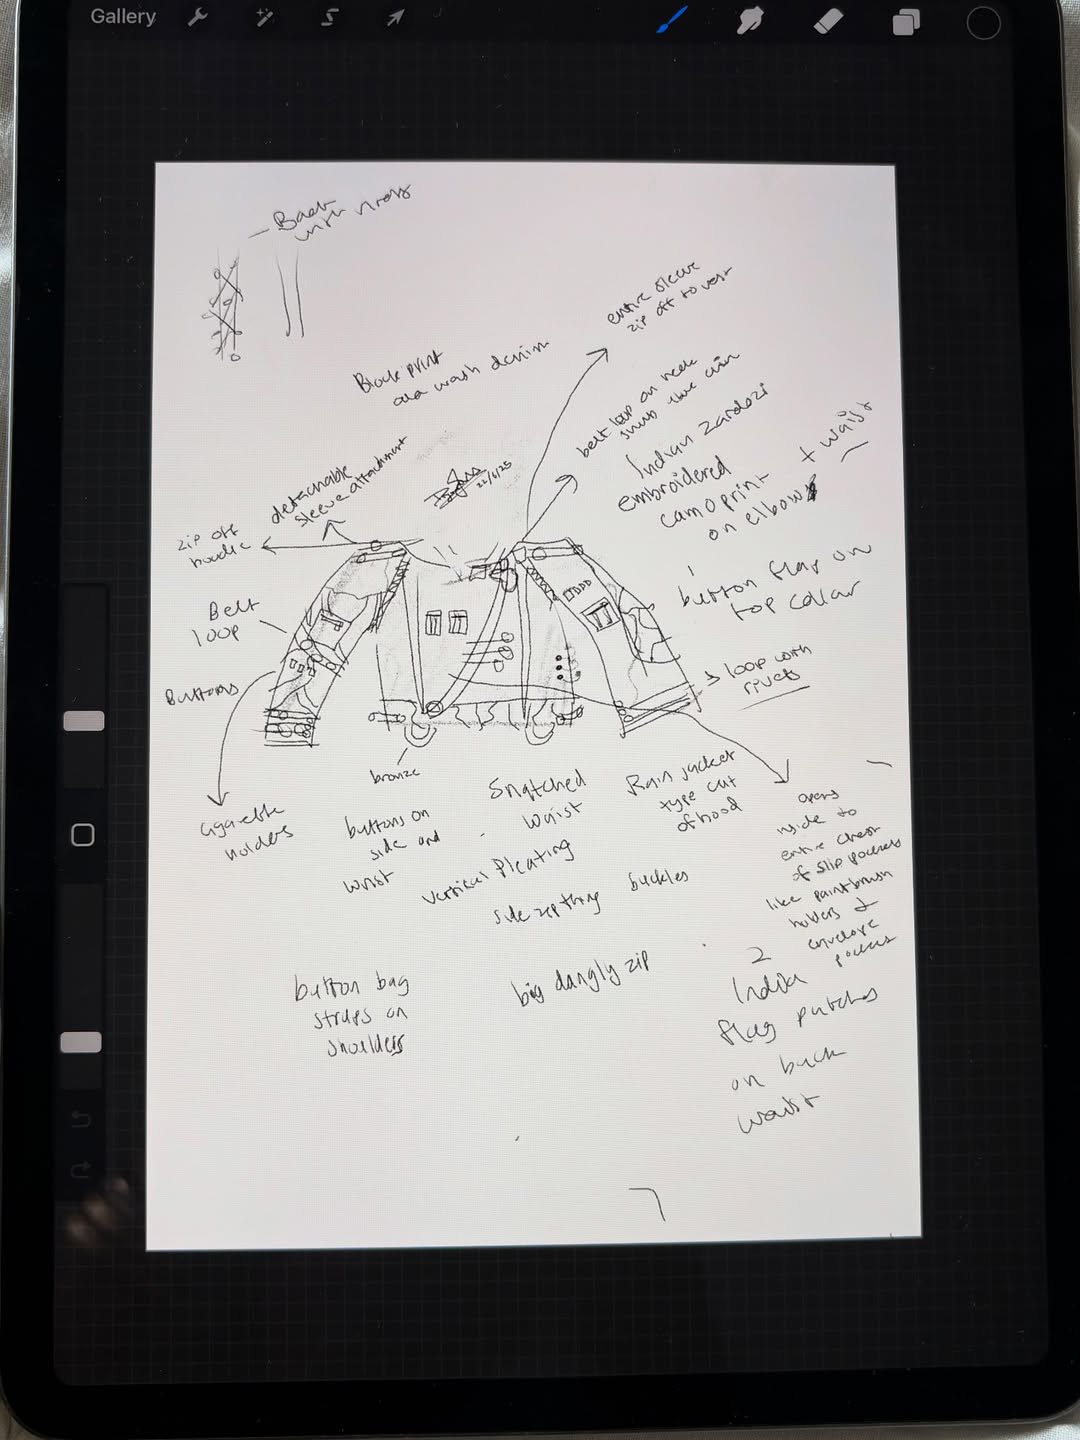 Gallery
Back
with
entire sleeve
zip off to vest
Block print
wash denim
belt loop on neck
Indian Zardozi
embroidered
camo print
on elbow
+ waist
detachable
sleeve attachment
22/6/25
zip off
hoodie
Belt
loop
Buttons
button flap on
top collar
loop with
rivets
bronze
cigarette
holders
buttons on
side and
wrist
Snatched
waist
Vertical Pleating
side zip thing
buckles
Rain jacket
type cut
of hood
opens
inside to
entire chest
of slip pockets
like paintbrush
holders &
envelope
pockets
big dangly zip
button bag
straps on
shoulders
2
India
flag patches
on back
waist